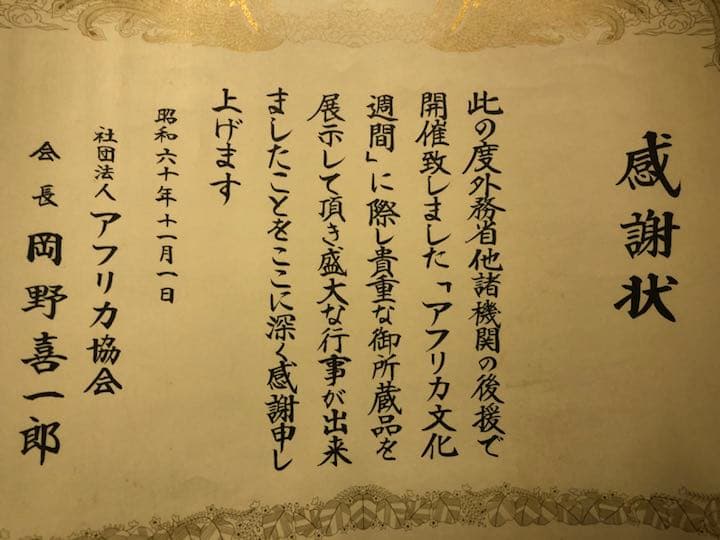 感謝状
此の度外務省他諸機関の後援で
開催致しました「アフリカ文化
週間」に際し貴重な御所蔵品を
展示して頂き盛大な行事が出来
ましたことをここに深く感謝申し
上げます
昭和六十年十一月一日
社団法人アフリカ協会
会長 岡野喜一郎